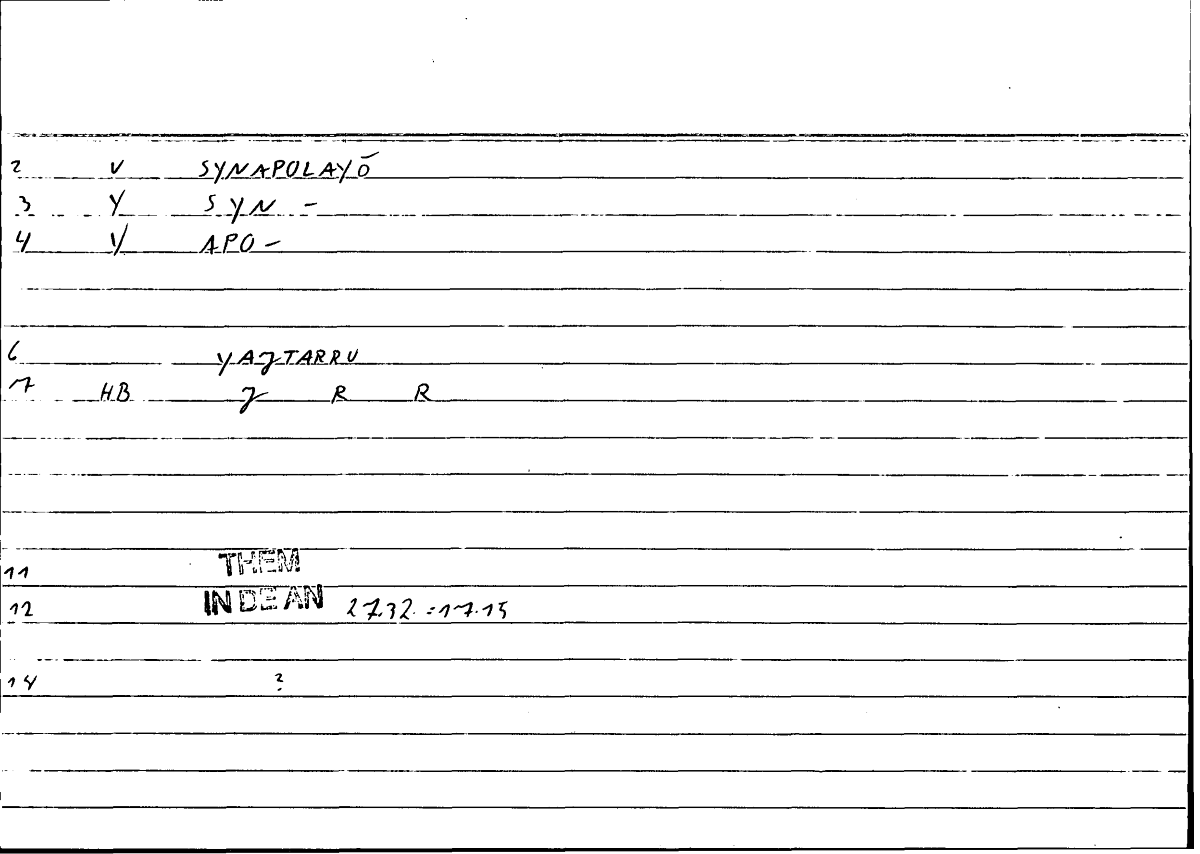 2 V SYNAPOLAYŌ
3 Y SYN -
4 V APO -
6 YAJTARRU
7 HB J R R
11 THEM
12 IN DE AN 27.32 = 17.15
14 ?